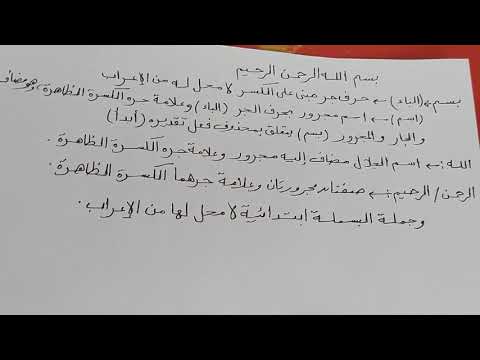 بسم الله الرحمن الرحيم
بسم ← (الباء) ← حرف جر مبني على الكسر لا محل له من الإعراب
(اسم) ← اسم مجرور بحرف الجر (الباء) وعلامة جره الكسرة الظاهرة، وهو مضاف
والجار والمجرور (بسم) يتعلق بمحذوف فعل تقديره (أبدأ)
الله: ← اسم الجلال مضاف إليه مجرور وعلامة جره الكسرة الظاهرة.
الرحمن / الرحيم: ← صفتان مجروريتان وعلامة جرهما الكسرة الظاهرة.
وجملة البسملة ابتدائية لا محل لها من الإعراب.